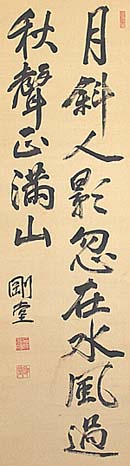 月斜人影忽在水風過
秋聲正滿山
剛堂